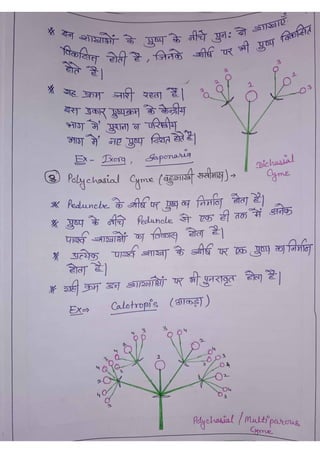 * इन शाखाओं के पुष्प के नीचे पुनः दो शाखाएँ
विकसित होती है, जिनके शीर्ष पर भी पुष्प विकसित
होते है।
* यह क्रम जारी रहता है।
इस प्रकार पुष्पक्रम के केन्द्रीय
भाग में पुराना व परिधीय
भाग में नए पुष्प स्थित होते है।
Ex - Ixora, Saponaria
Dichasial
Cyme
3 Polychasial Cyme (बहुशाखी ससीमाक्ष) →
* Peduncle के शीर्ष पर पुष्प का निर्माण होता है।
* पुष्प के नीचे Peduncle से एक ही तल में अनेक
पार्श्व शाखाओं का विकास होता है।
* प्रत्येक पार्श्व शाखा के शीर्ष पर एक पुष्प का निर्माण
होता है।
* यही क्रम इन शाखाओं पर भी पुनरावृत होता है।
Ex⇒ Calotropis (आकड़ा)
Polychasial / Multiparous
Cyme